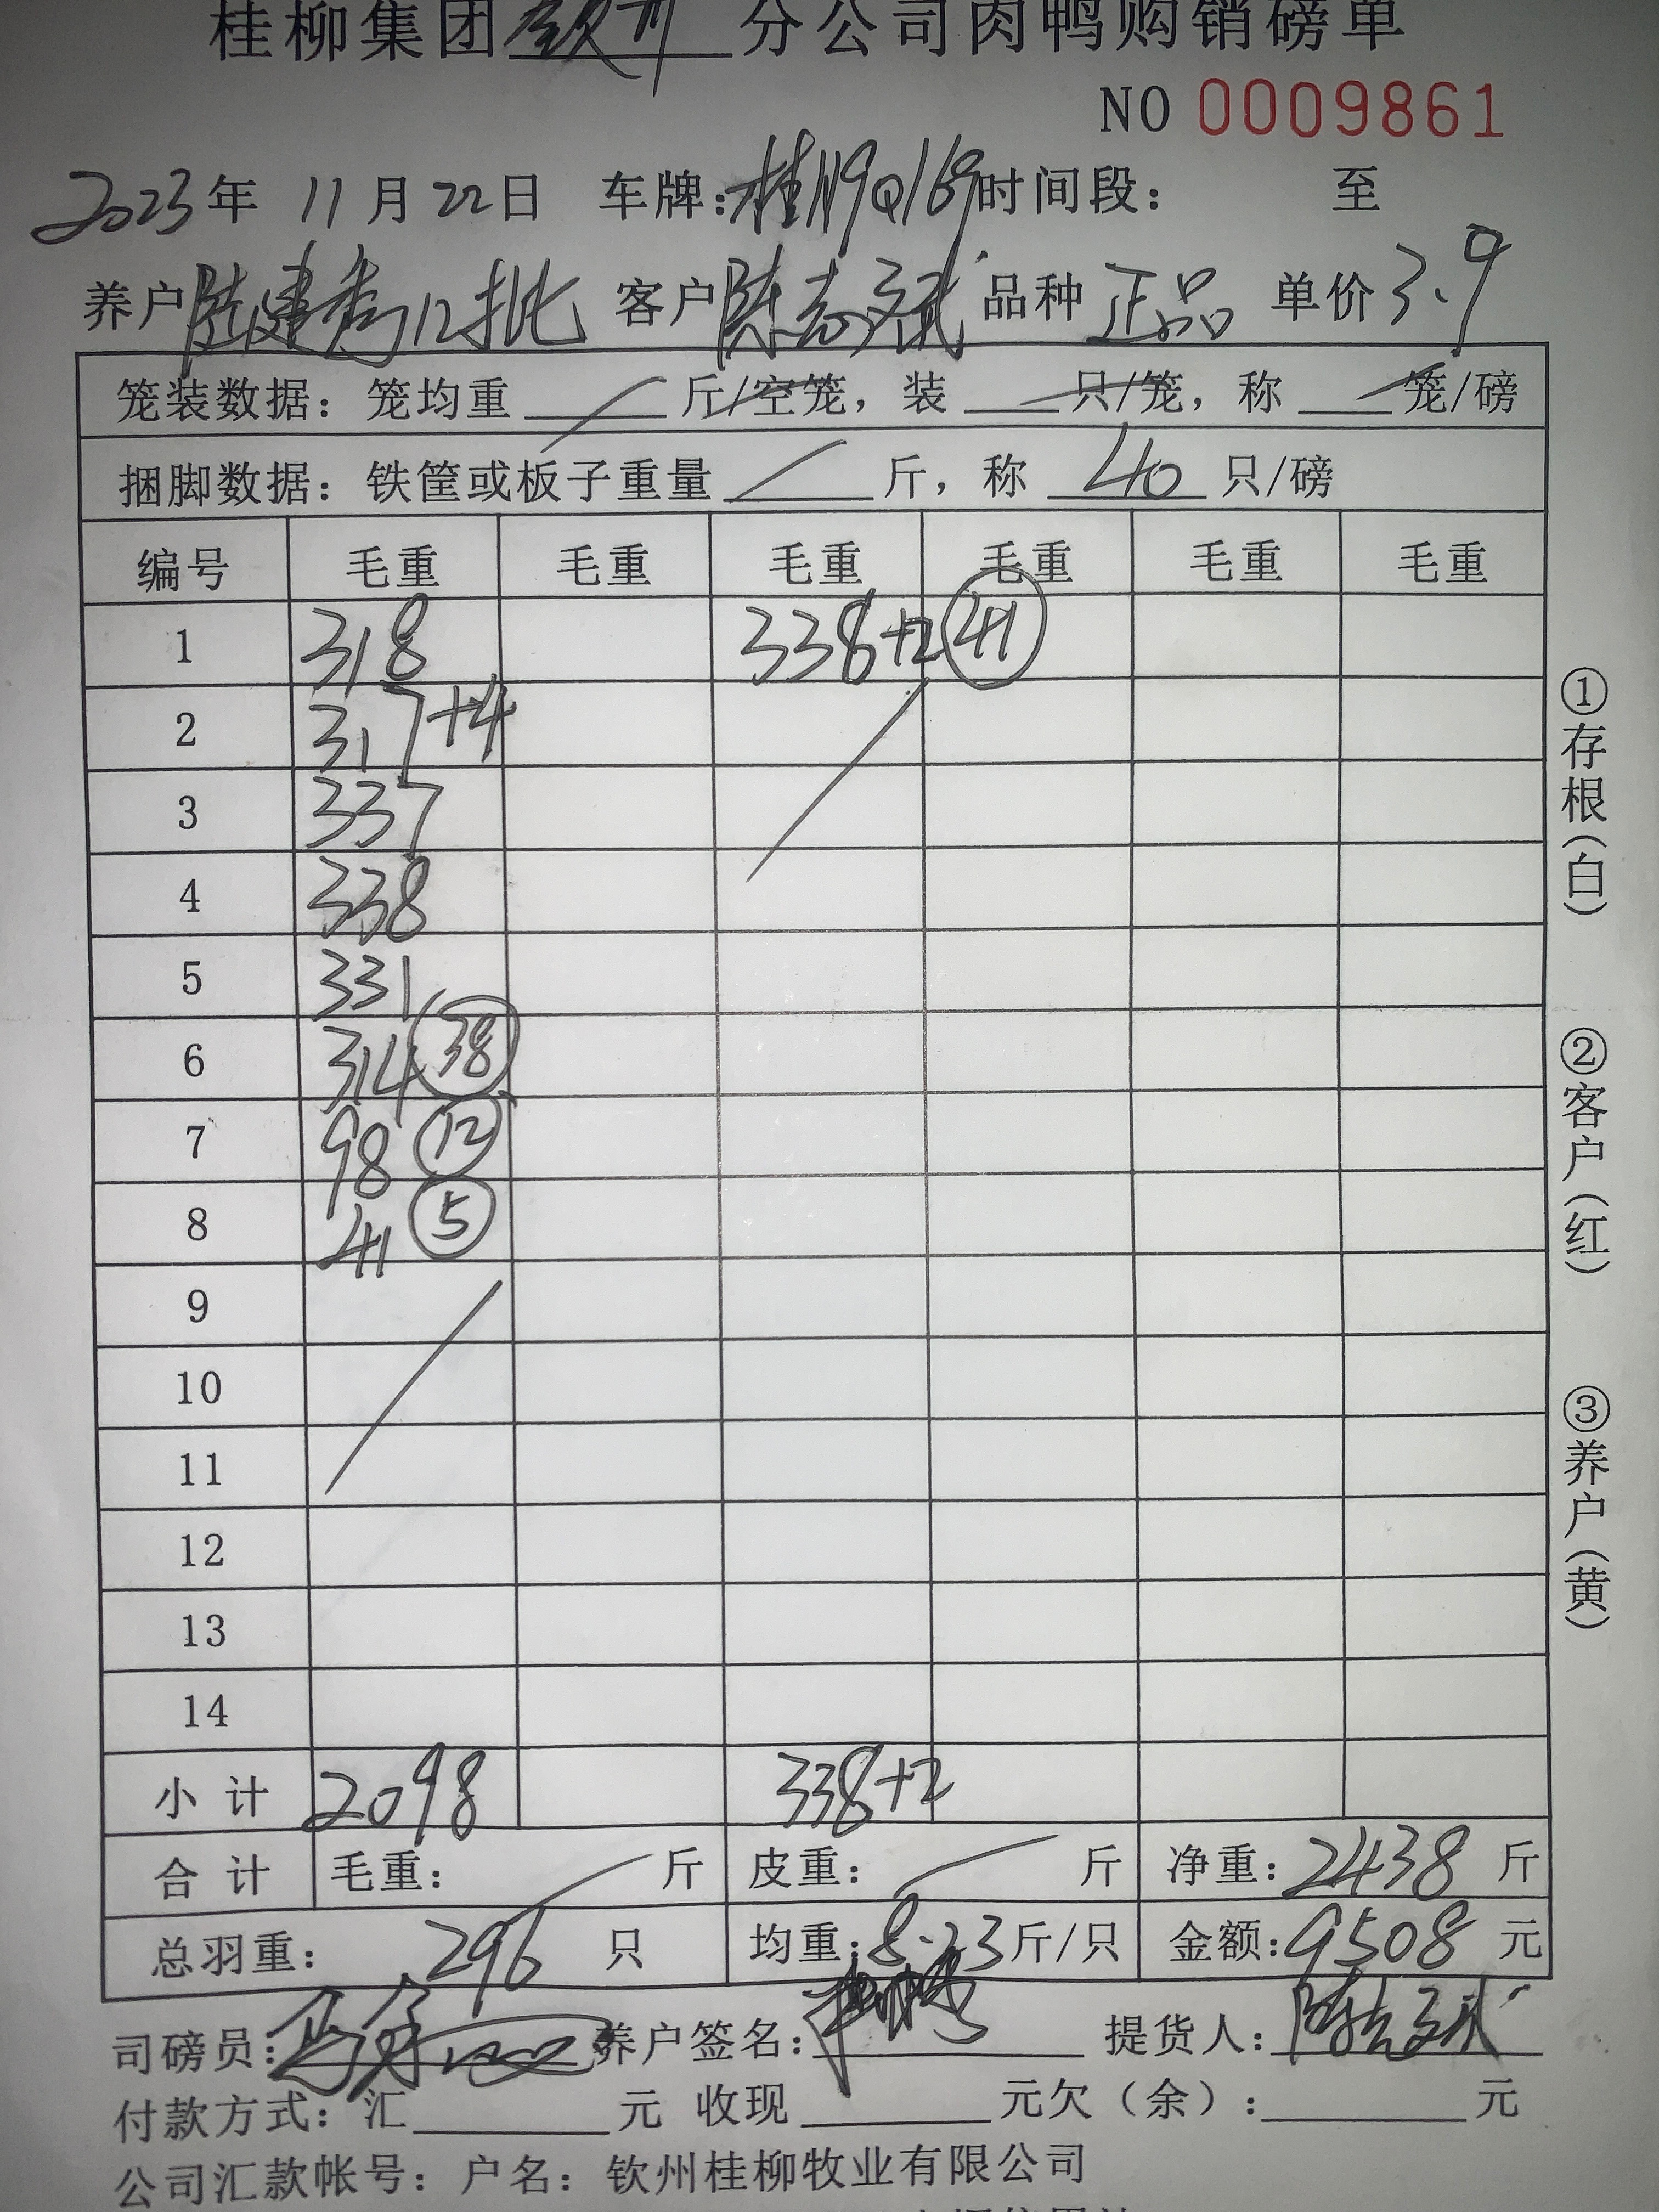 桂柳集团钦州分公司肉鸭购销磅单
NO 0009861
2023年 11月22日 车牌:桂N9Q169时间段: 至
养户陆建秀12批 客户陈志斌 品种 正品 单价3.9
笼装数据: 笼均重 斤/空笼, 装 只/笼, 称 笼/磅
捆脚数据: 铁筐或板子重量 斤, 称 40 只/磅
编号 毛重 毛重 毛重 毛重 毛重 毛重
1 318 338+2 41
2 317+4
3 337
4 338
5 331
6 314 38
7 98 12
8 41 5
9
10
11
12
13
14
小计 2098 338+2
合计 毛重: 斤 皮重: 斤 净重: 2438 斤
总羽重: 296 只 均重: 8.23斤/只 金额: 9508 元
司磅员: 养户签名: 提货人: 陈志斌
付款方式: 汇 元 收现 元欠(余): 元
公司汇款帐号: 户名: 钦州桂柳牧业有限公司
①存根(白)
②客户(红)
③养户(黄)